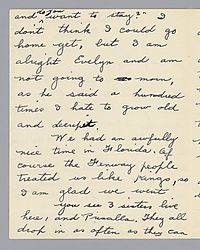 and do you want to stay?" I
don't think I could go
home yet, but I am
alright Evelyn and am
not going to mourn,
as he said a hundred
times I hate to grow old
and decrepit
We had an awfully
nice time in Florida. Of
course the Fenway people
treated us like kings, so
I am glad we went
you see 3 sisters live
here, and Priscilla. They all
drop in as often as they can